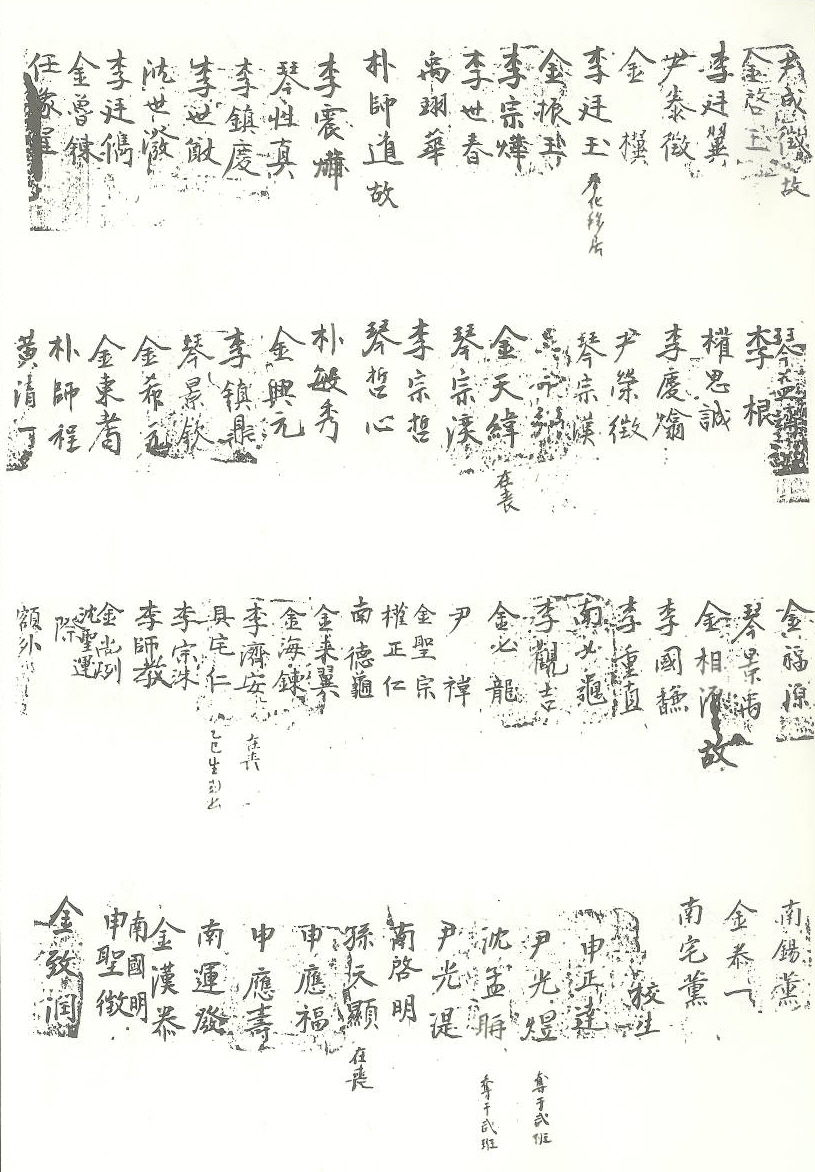 尹成徵 故
金啓玉
李廷翼
尹泰徵
金
李廷玉 奉化移居
金振玉
李宗燁
李世春
禹翊華
朴師道 故
李震爀
琴性真
李鎮慶
李世猷
沈世潑
李廷儁
金曾鍊
任象
琴益
李根
權思誠
李慶爚
尹榮徵
琴宗漢
金天緯 在喪
琴宗溪
李宗哲
琴哲心
朴敏秀
金興元
李鎮鼎
琴景欽
金希元
金東耉
朴師程
黃清一
金福源
琴景禹
金相 故
李國馦
李重直
南必
李觀吉
金必龍
尹禕
金聖宗
權正仁
南德龜
金來翼
金海鍊
李濟安 在喪
具宅仁 乙巳生
李宗洙
李師教
金尚
沈聖運
際
額外
南錫薰
金恭一
南宅薰
校生
申正達
尹光煜 奪于武班
沈孟 奪于武班
尹光湜
南啓明
孫天顯 在喪
申應福
申應壽
南運發
金漢泰
南國明
申聖徵
金致潤